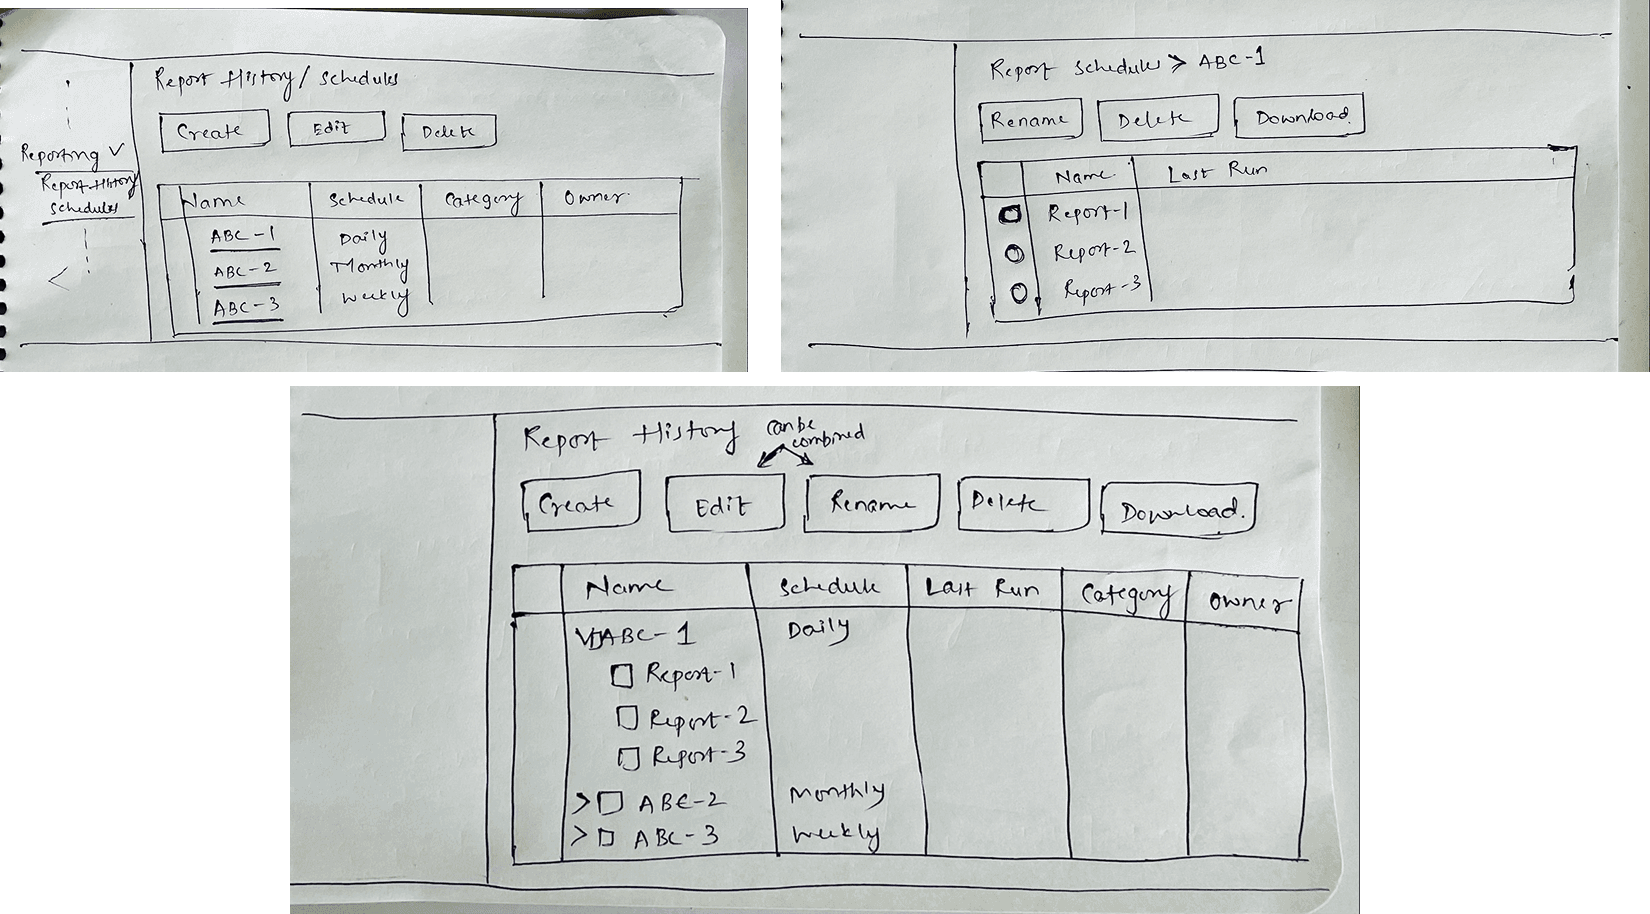 Report History/ Schedules
Create Edit Delete
Reporting
Report History
Schedules
Name Schedule Category Owner
ABC-1 Daily
ABC-2 Monthly
ABC-3 Weekly
Report Schedules > ABC-1
Rename Delete Download
Name Last Run
Report-1
Report-2
Report-3
Report History
can be
combined
Create Edit Rename Delete Download.
Name Schedule Last Run Category Owner
ABC-1 Daily
Report-1
Report-2
Report-3
> ABC-2 Monthly
> ABC-3 Weekly